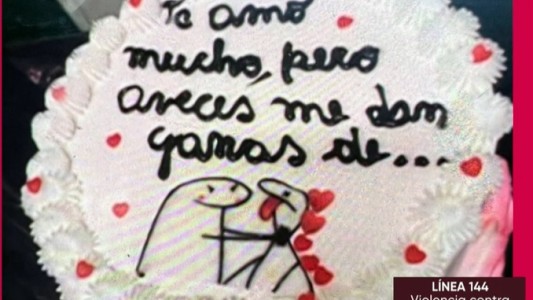 Te amo
mucho, pero
aveces me dan
ganas de...
LÍNEA 144
Violencia contra